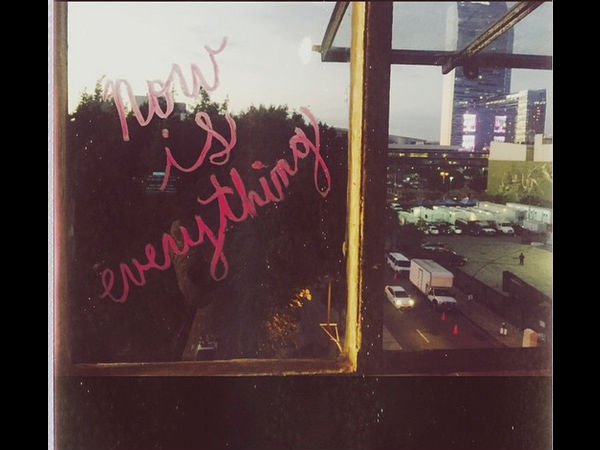 now
is
everything